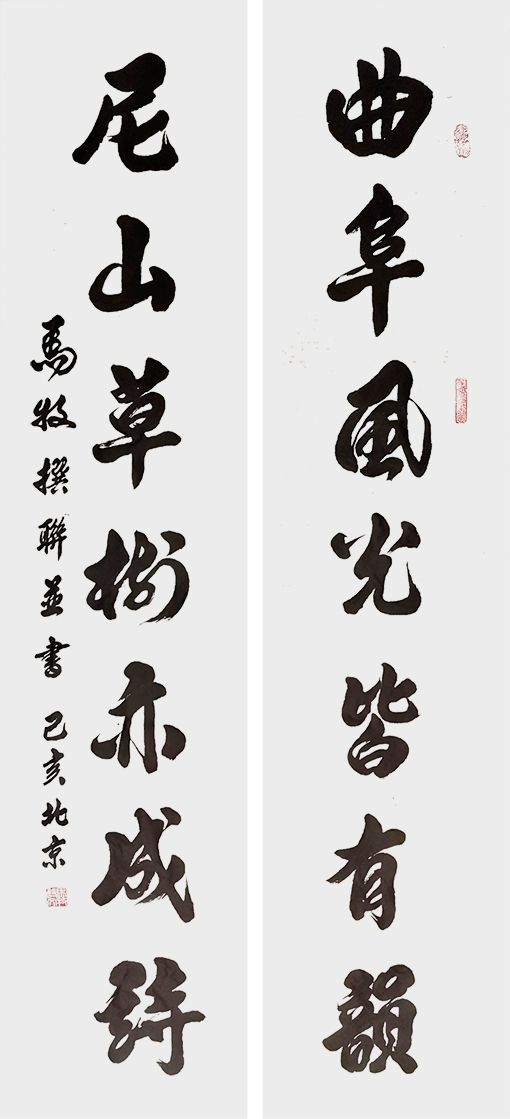 曲阜風光皆有韻
尼山草樹亦成詩
馬牧撰聯並書 己亥北京